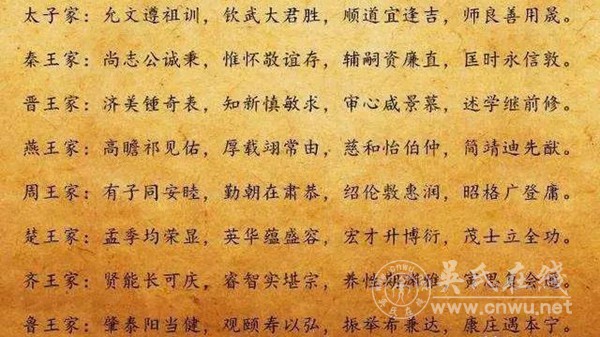 太子家：允文遵祖训，钦武大君胜，顺道宜逢吉，师良善用晟。
秦王家：尚志公诚秉，惟怀敬谊存，辅嗣资廉直，匡时永信敦。
晋王家：济美锺奇表，知新慎敏求，审心咸景慕，述学继前修。
燕王家：高瞻祁见佑，厚载翊常由，慈和怡伯仲，简靖迪先猷。
周王家：有子同安睦，勤朝在肃恭，绍伦敷惠润，昭格广登庸。
楚王家：孟季均荣显，英华蕴盛容，宏才升博衍，茂士立全功。
齐王家：贤能长可庆，睿智实堪宗，养性期
鲁王家：肇泰阳当健，观颐寿以弘，振举布兼达，康庄遇本宁。
吴氏在线
www.cnwu.net